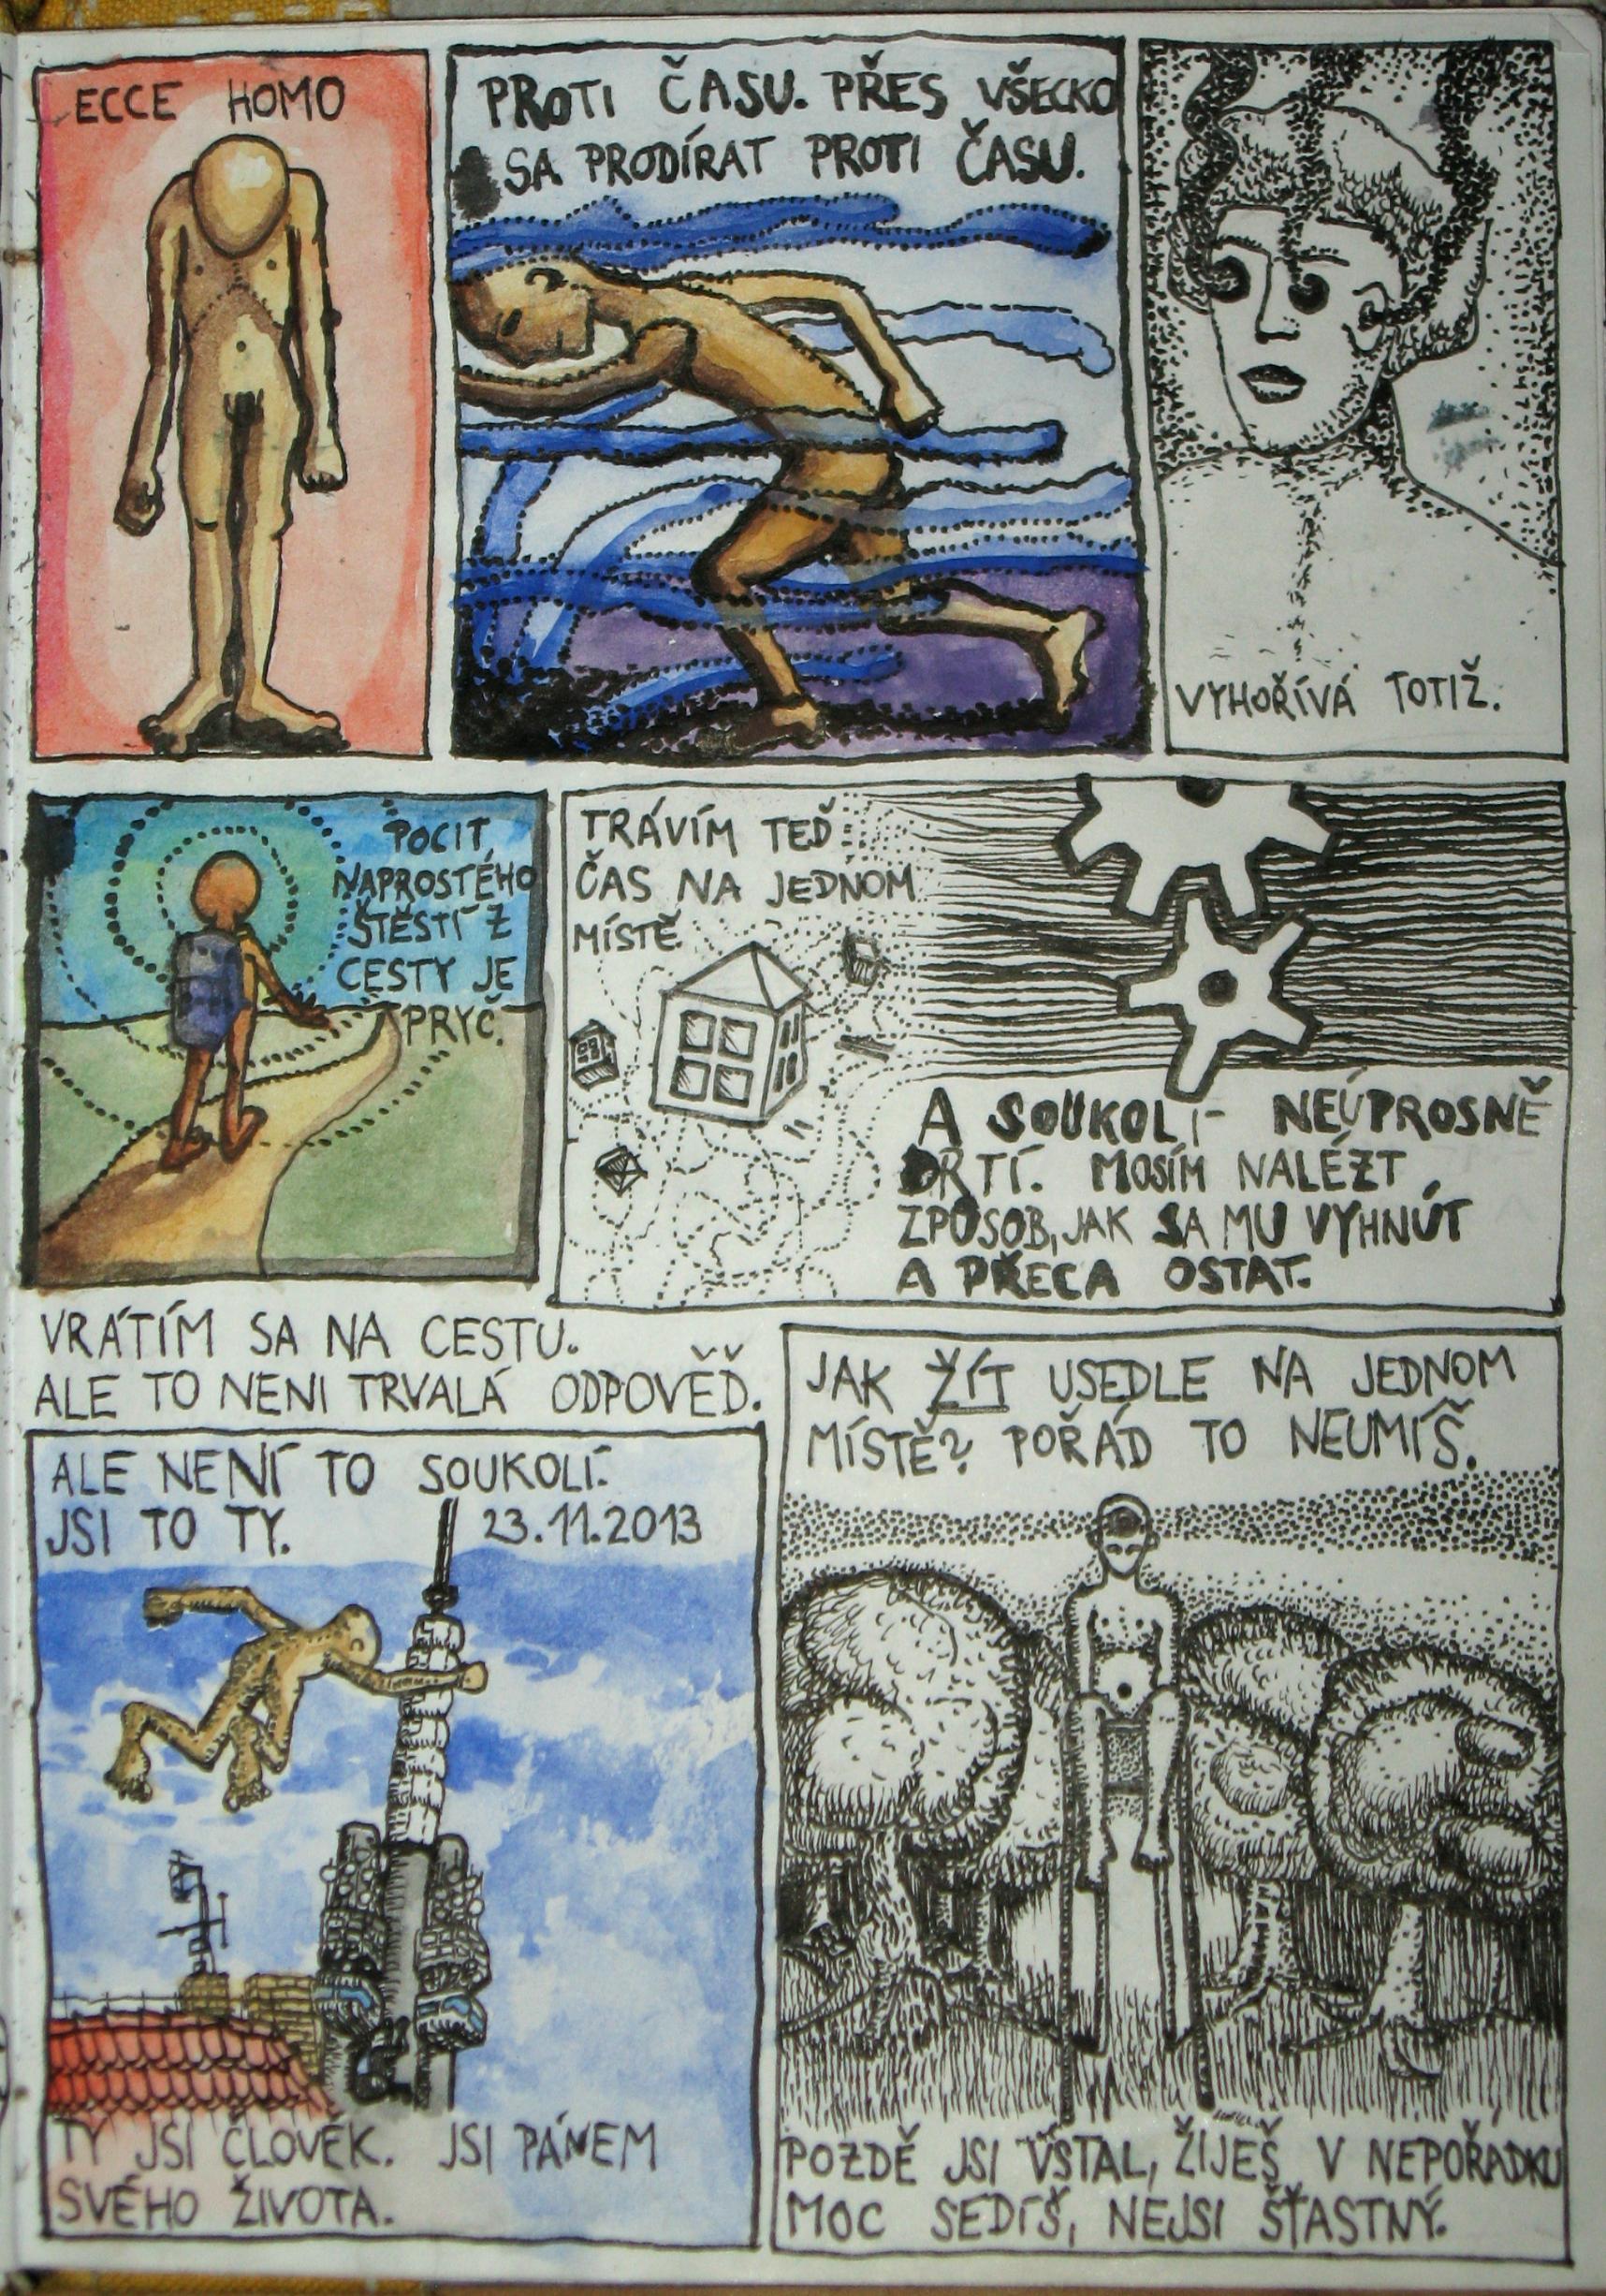 ECCE HOMO
PROTI ČASU. PŘES VŠECKO
SA PRODÍRAT PROTI ČASU.
VYHOŘÍVÁ TOTIŽ.
POCIT
NAPROSTÉHO
ŠTĚSTÍ Z
CESTY JE
PRYČ.
TRÁVÍM TEĎ
ČAS NA JEDNOM
MÍSTĚ.
A SOUKOLÍ NEÚPROSNĚ
DRTÍ. MOSÍM NALÉZT
ZPŮSOB, JAK SA MU VYHNÚT
A PŘECA OSTAT.
VRÁTÍM SA NA CESTU.
ALE TO NENI TRVALÁ ODPOVĚĎ.
JAK ŽÍT USEDLE NA JEDNOM
MÍSTĚ? POŘÁD TO NEUMÍŠ.
POZDĚ JSI VSTAL, ŽIJEŠ V NEPOŘÁDKU
MOC SEDÍŠ, NEJSI ŠŤASTNÝ.
ALE NENÍ TO SOUKOLÍ.
JSI TO TY. 23.11.2013
TY JSI ČLOVĚK. JSI PÁNEM
SVÉHO ŽIVOTA.